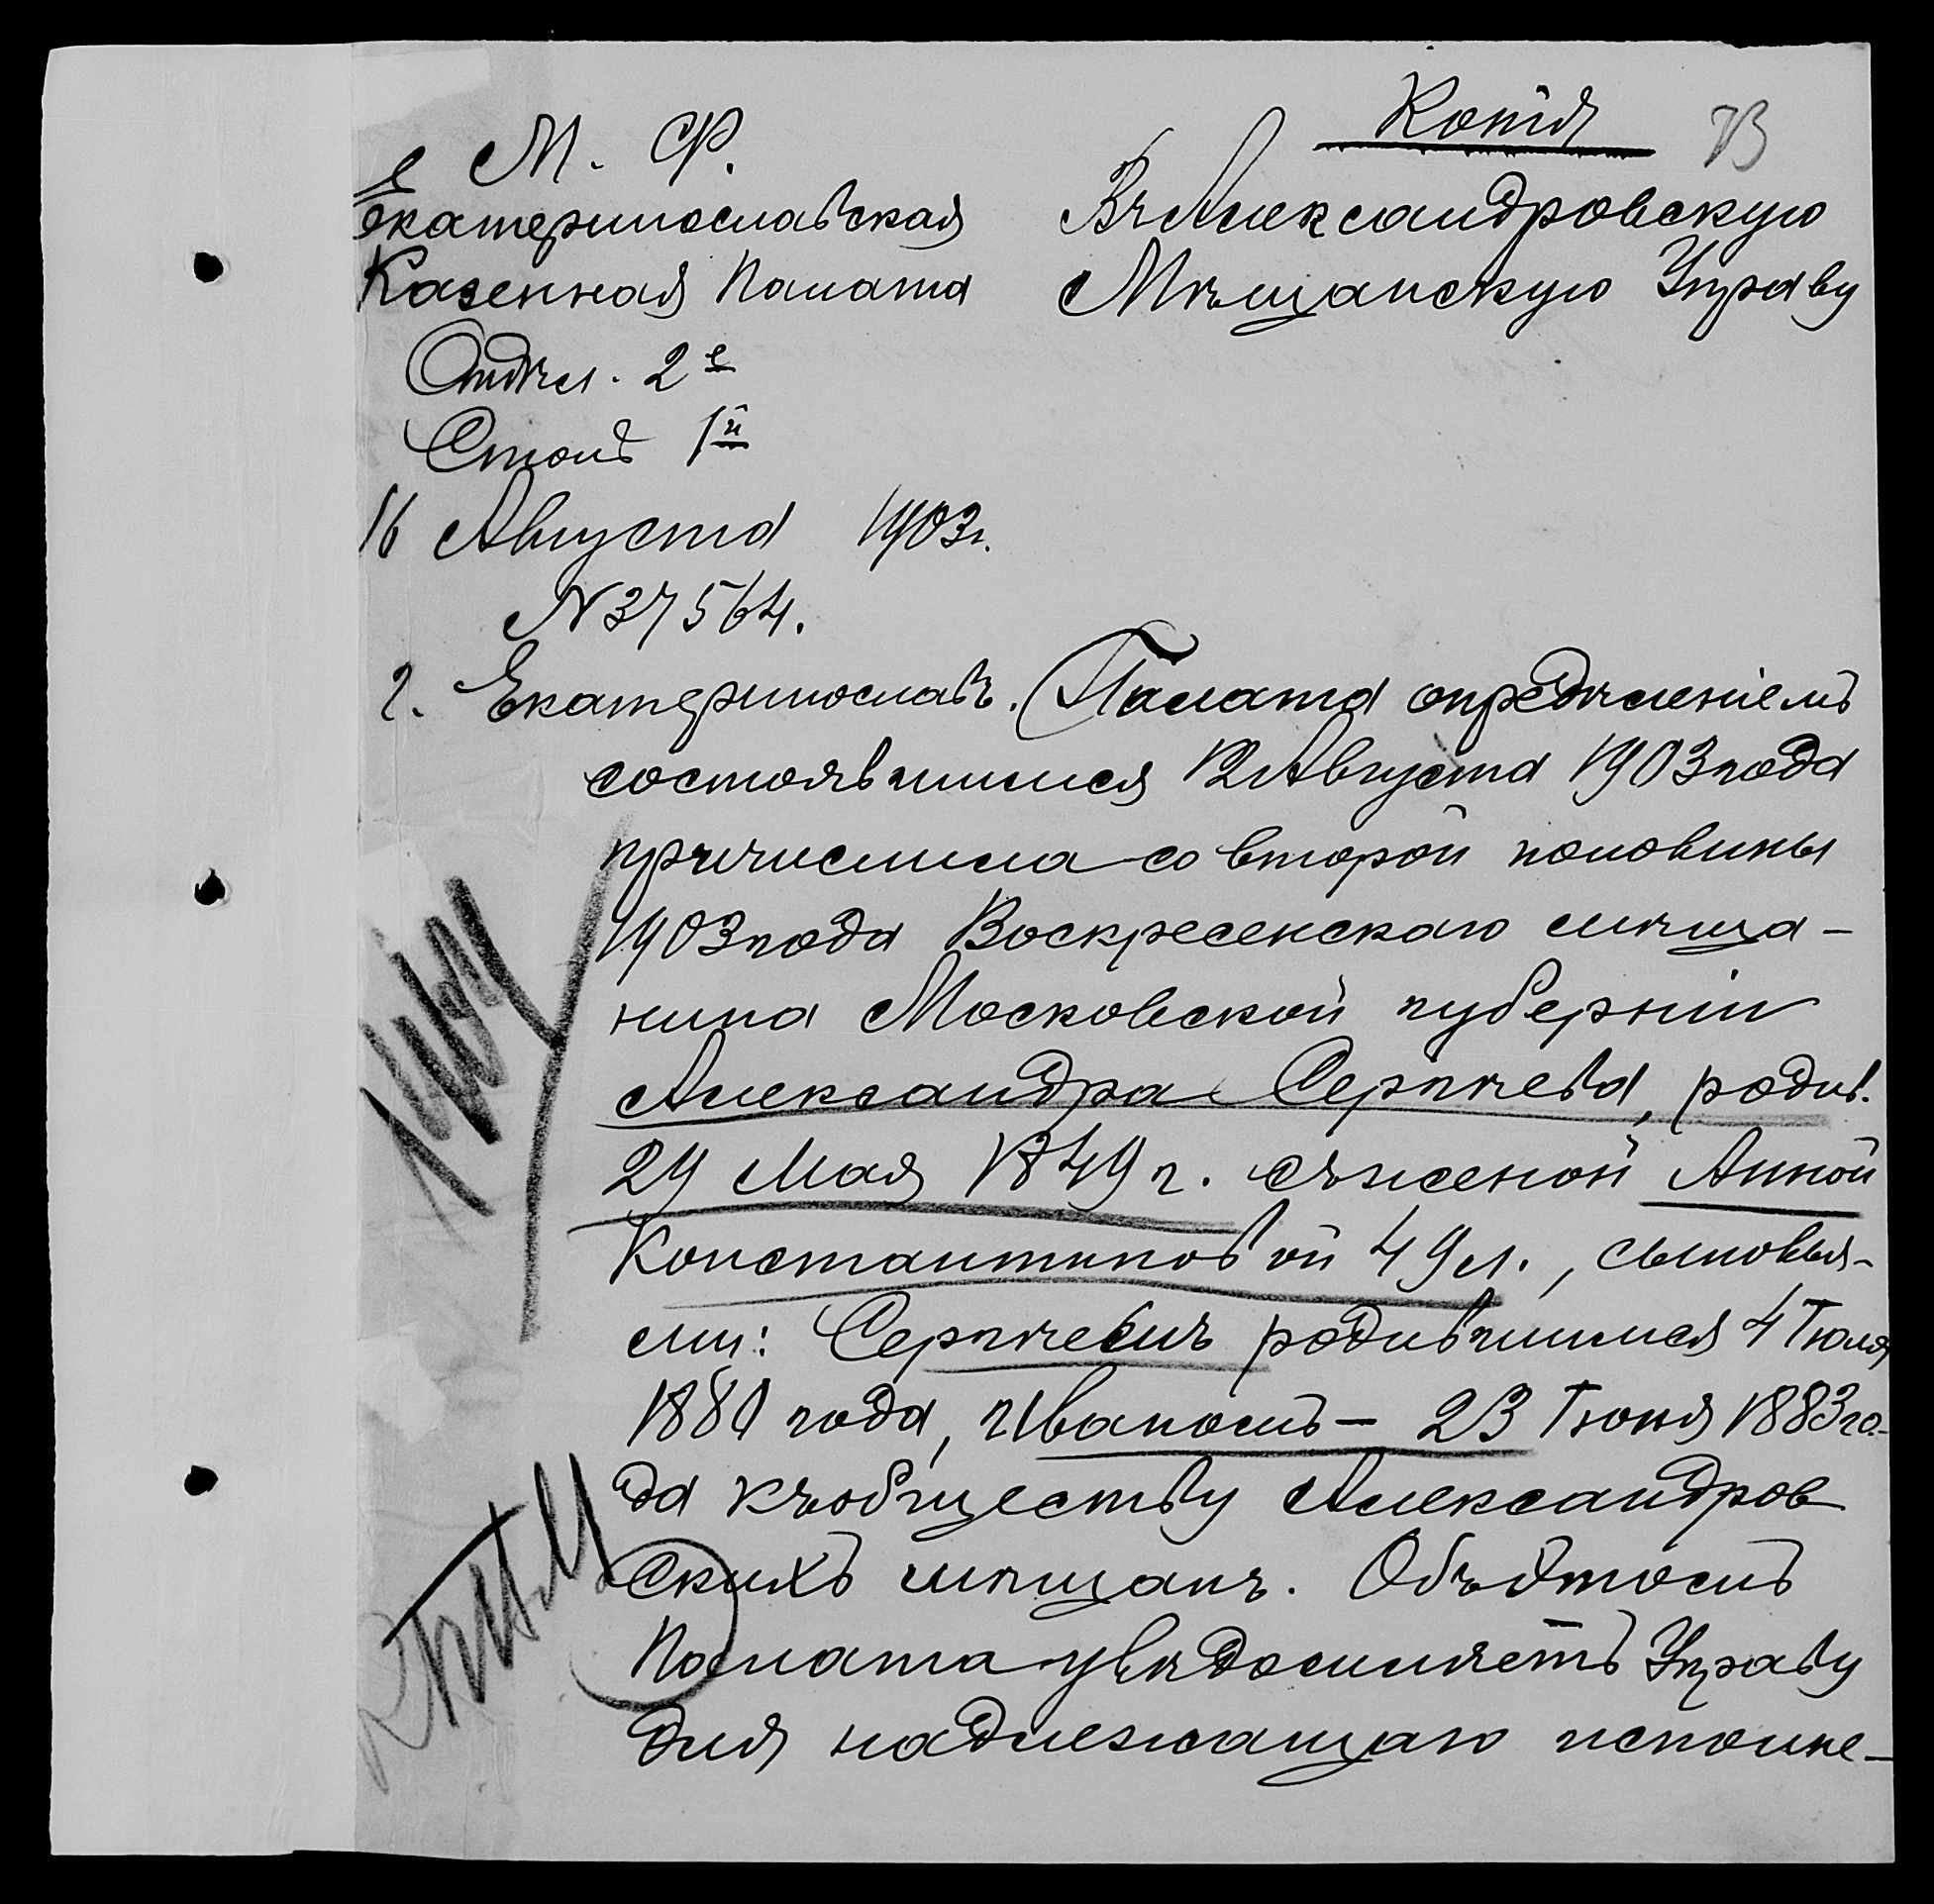 Копія
73
М. Ф.
Екатеринославская
Казенная Палата
Отдѣл. 2е
Столъ 1й
16 Августа 1903г.
N 37564.
г. Екатеринославъ.
Въ Александровскую
Мѣщанскую Управу
Палата опредѣленіемъ
состоявшимся 12 Августа 1903 года
причислила со второй половины
1903 года Воскресенскаго мѣща-
нина Московской губерніи
Александра Сергѣева, родив.
29 Мая 1849 г. съ женой Анной
Константиновой 49 л., сыновья-
ми: Сергѣемъ родившимся 4 Іюля
1880 года, Иваномъ – 23 Іюня 1883 го-
да къ обществу Александров
скихъ мѣщанъ. Объ этомъ
Палата увѣдомляетъ Управу
для надлежащаго исполне-